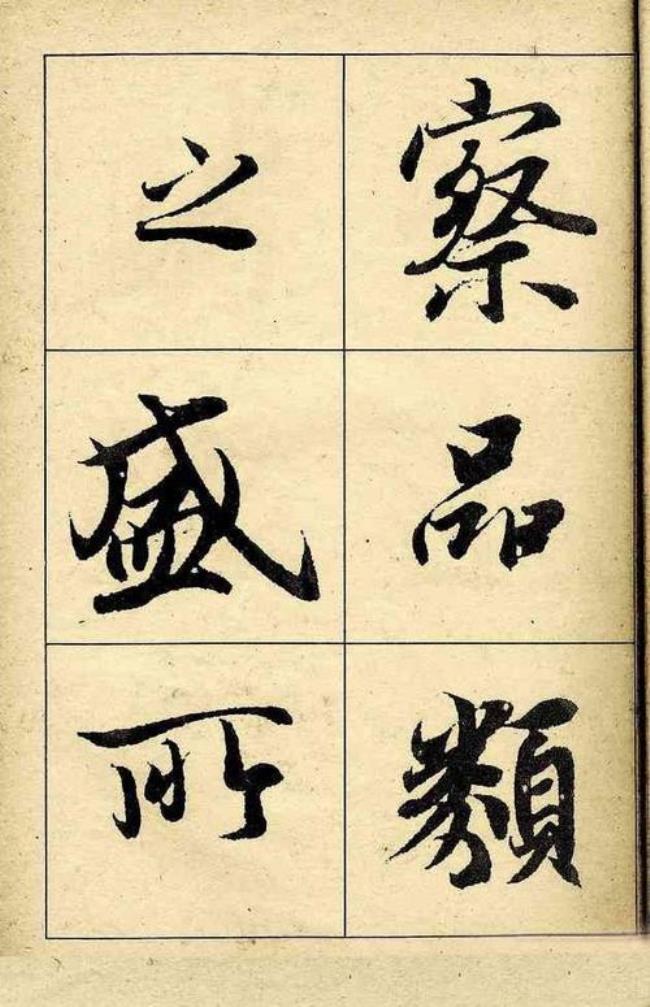 察品類
之盛所